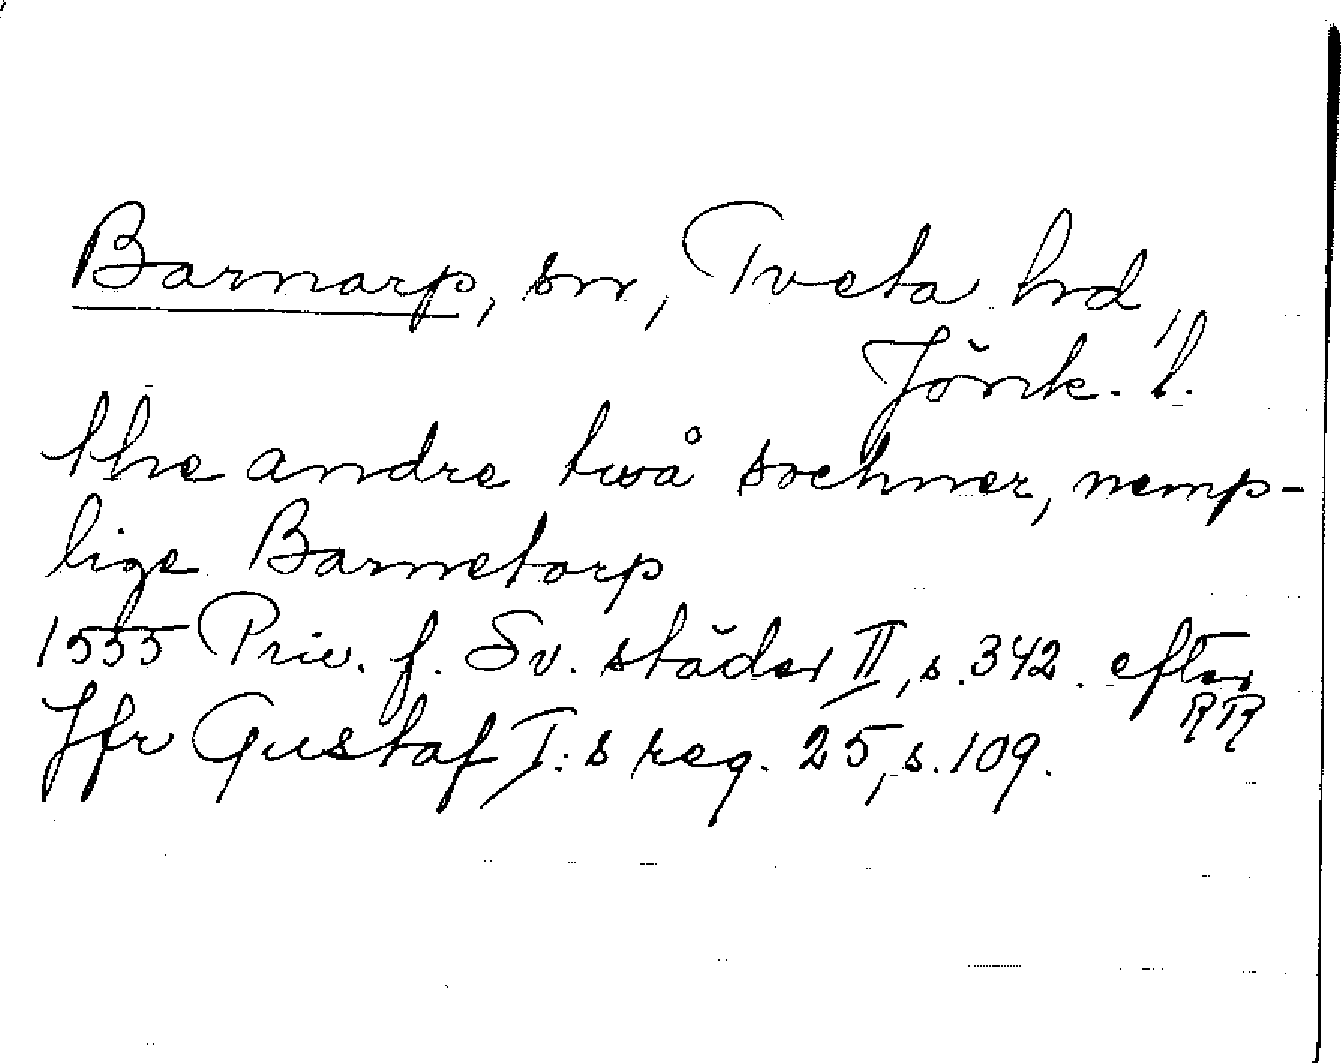 Barnarp, sn, Tveta hrd,
Jönk. l.
the andre twå sochner, nemp-
lige Barnetorp
1555 Priv. f. Sv. städer II, s. 342. efter
RR
Jfr Gustaf I:s reg. 25, s. 109.